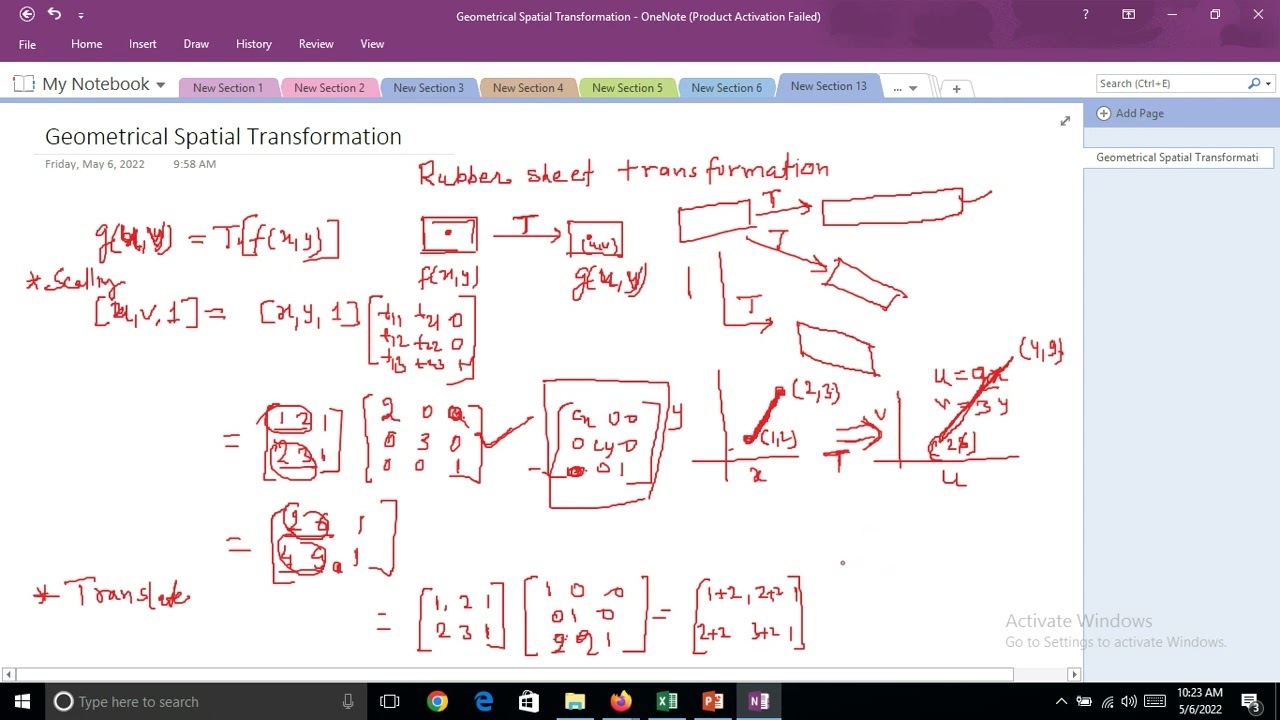 Geometrical Spatial Transformation - OneNote (Product Activation Failed)
?
File Home Insert Draw History Review View
My Notebook
New Section 1 New Section 2 New Section 3 New Section 4 New Section 5 New Section 6 New Section 13 ... +
Search (Ctrl+E)
Add Page
Geometrical Spatial Transformati
Geometrical Spatial Transformation
Friday, May 6, 2022 9:58 AM
Rubber sheet transformation
g(u,v) = T[f(x,y)]
T
T
T
T
(u,v)
f(x,y) g(u,v)
* Scalling
[u,v,1] = [x,y,1] [t11 t21 0
t12 t22 0
t13 t23 1]
= [1 2 1
2 3 1] [2 0 0
0 3 0
0 0 1]
[cx 0 0
0 cy 0
0 0 1]
y
(2,3)
(1,2)
x
T
v
(4,9)
v = 3y
(2,6)
u
= [2 6 1
4 9 1]
* Translate
= [1, 2 1
2 3 1] [1 0 0
0 1 0
2 2 1] = [1+2, 2+2 1
2+2 3+2 1]
Activate Windows
Go to Settings to activate Windows.
Type here to search
10:23 AM
5/6/2022
3